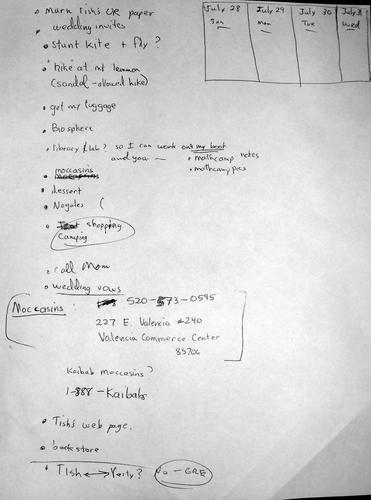 July 28 July 29 July 30 July 31
Sun Mon Tue Wed
Tish's UR paper
wedding invites
stunt kite + fly?
"hike" at mt lemmon
(sandal-allowed hike)
get my luggage
Biosphere
library/lab? so I can work on my beast
and you —
mathcamp notes
mathcamp pics
moccasins
dessert
Nogales (
shopping
camping
call Mom
wedding vows
Moccasins
520-573-0595
227 E. Valencia #240
Valencia Commerce Center
85706
Kaibab moccasins?
1-888-Kaibab
Tish's web page.
bookstore
Tish ↔ ? No-GRE